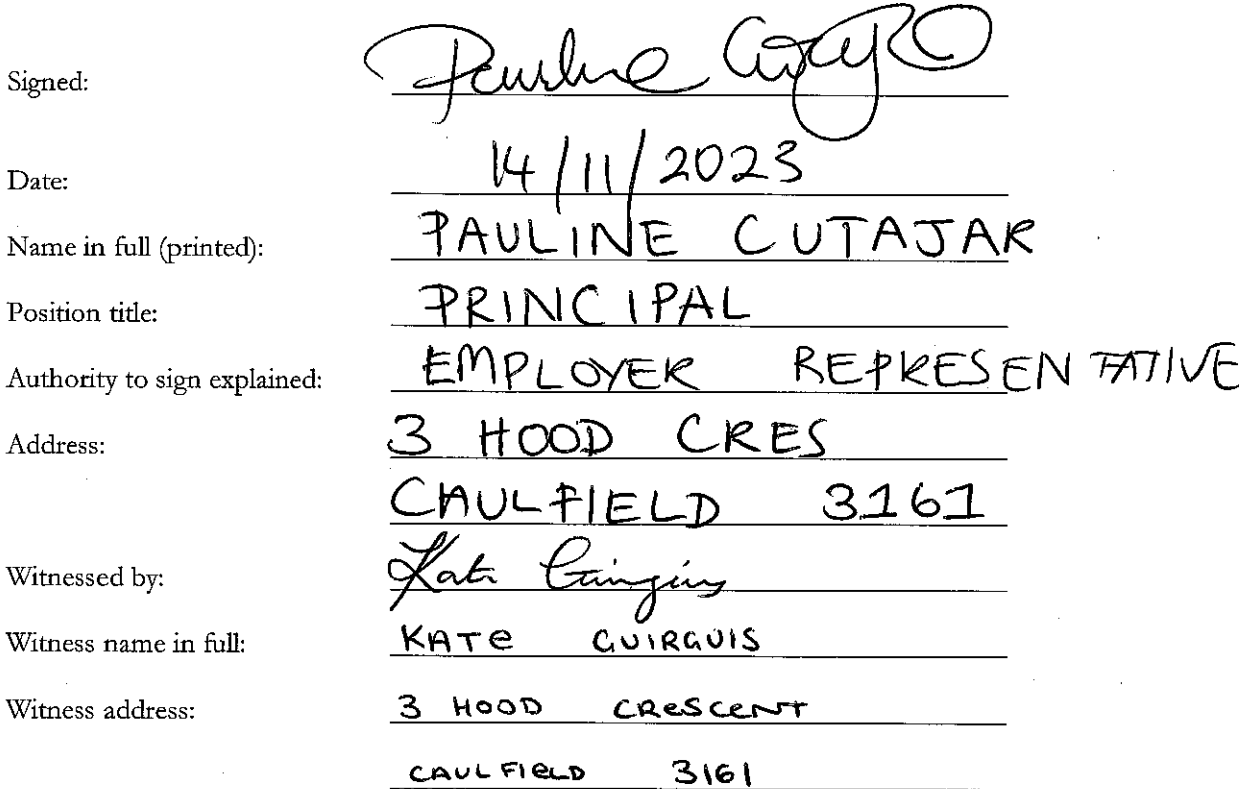 Signed: Pauline Cutajar
Date: 14/11/2023
Name in full (printed): PAULINE CUTAJAR
Position title: PRINCIPAL
Authority to sign explained: EMPLOYER REPRESENTATIVE
Address: 3 HOOD CRES
CAULFIELD 3161
Witnessed by: Kate Guirguis
Witness name in full: KATE GUIRGUIS
Witness address: 3 HOOD CRESCENT
CAULFIELD 3161